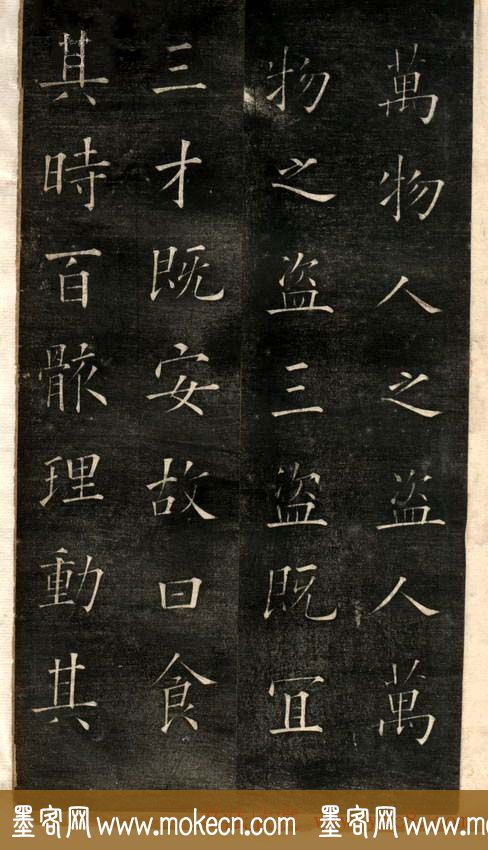 萬物人之盜人萬
物之盜三盜既冝
三才既安故曰食
其時百骸理動其
墨客网 www.mokecn.com 墨客网 www.mokecn.com